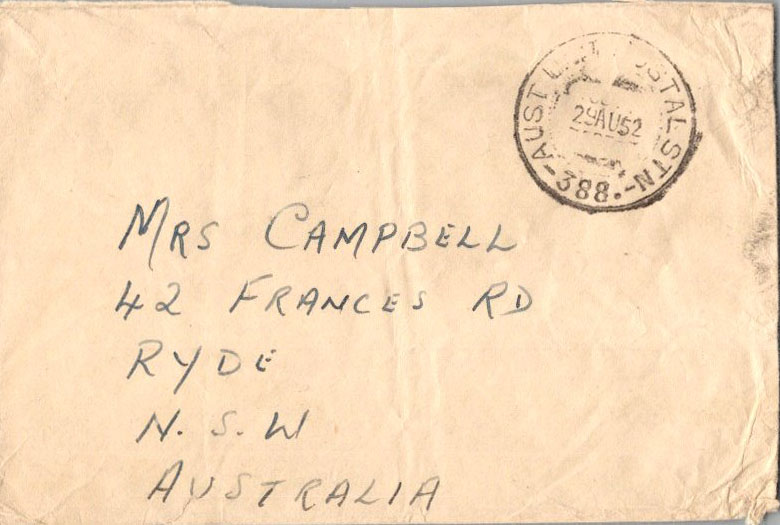 AUST UNIT POSTAL STN
388
29AU52
MRS CAMPBELL
42 FRANCES RD
RYDE
N.S.W
AUSTRALIA